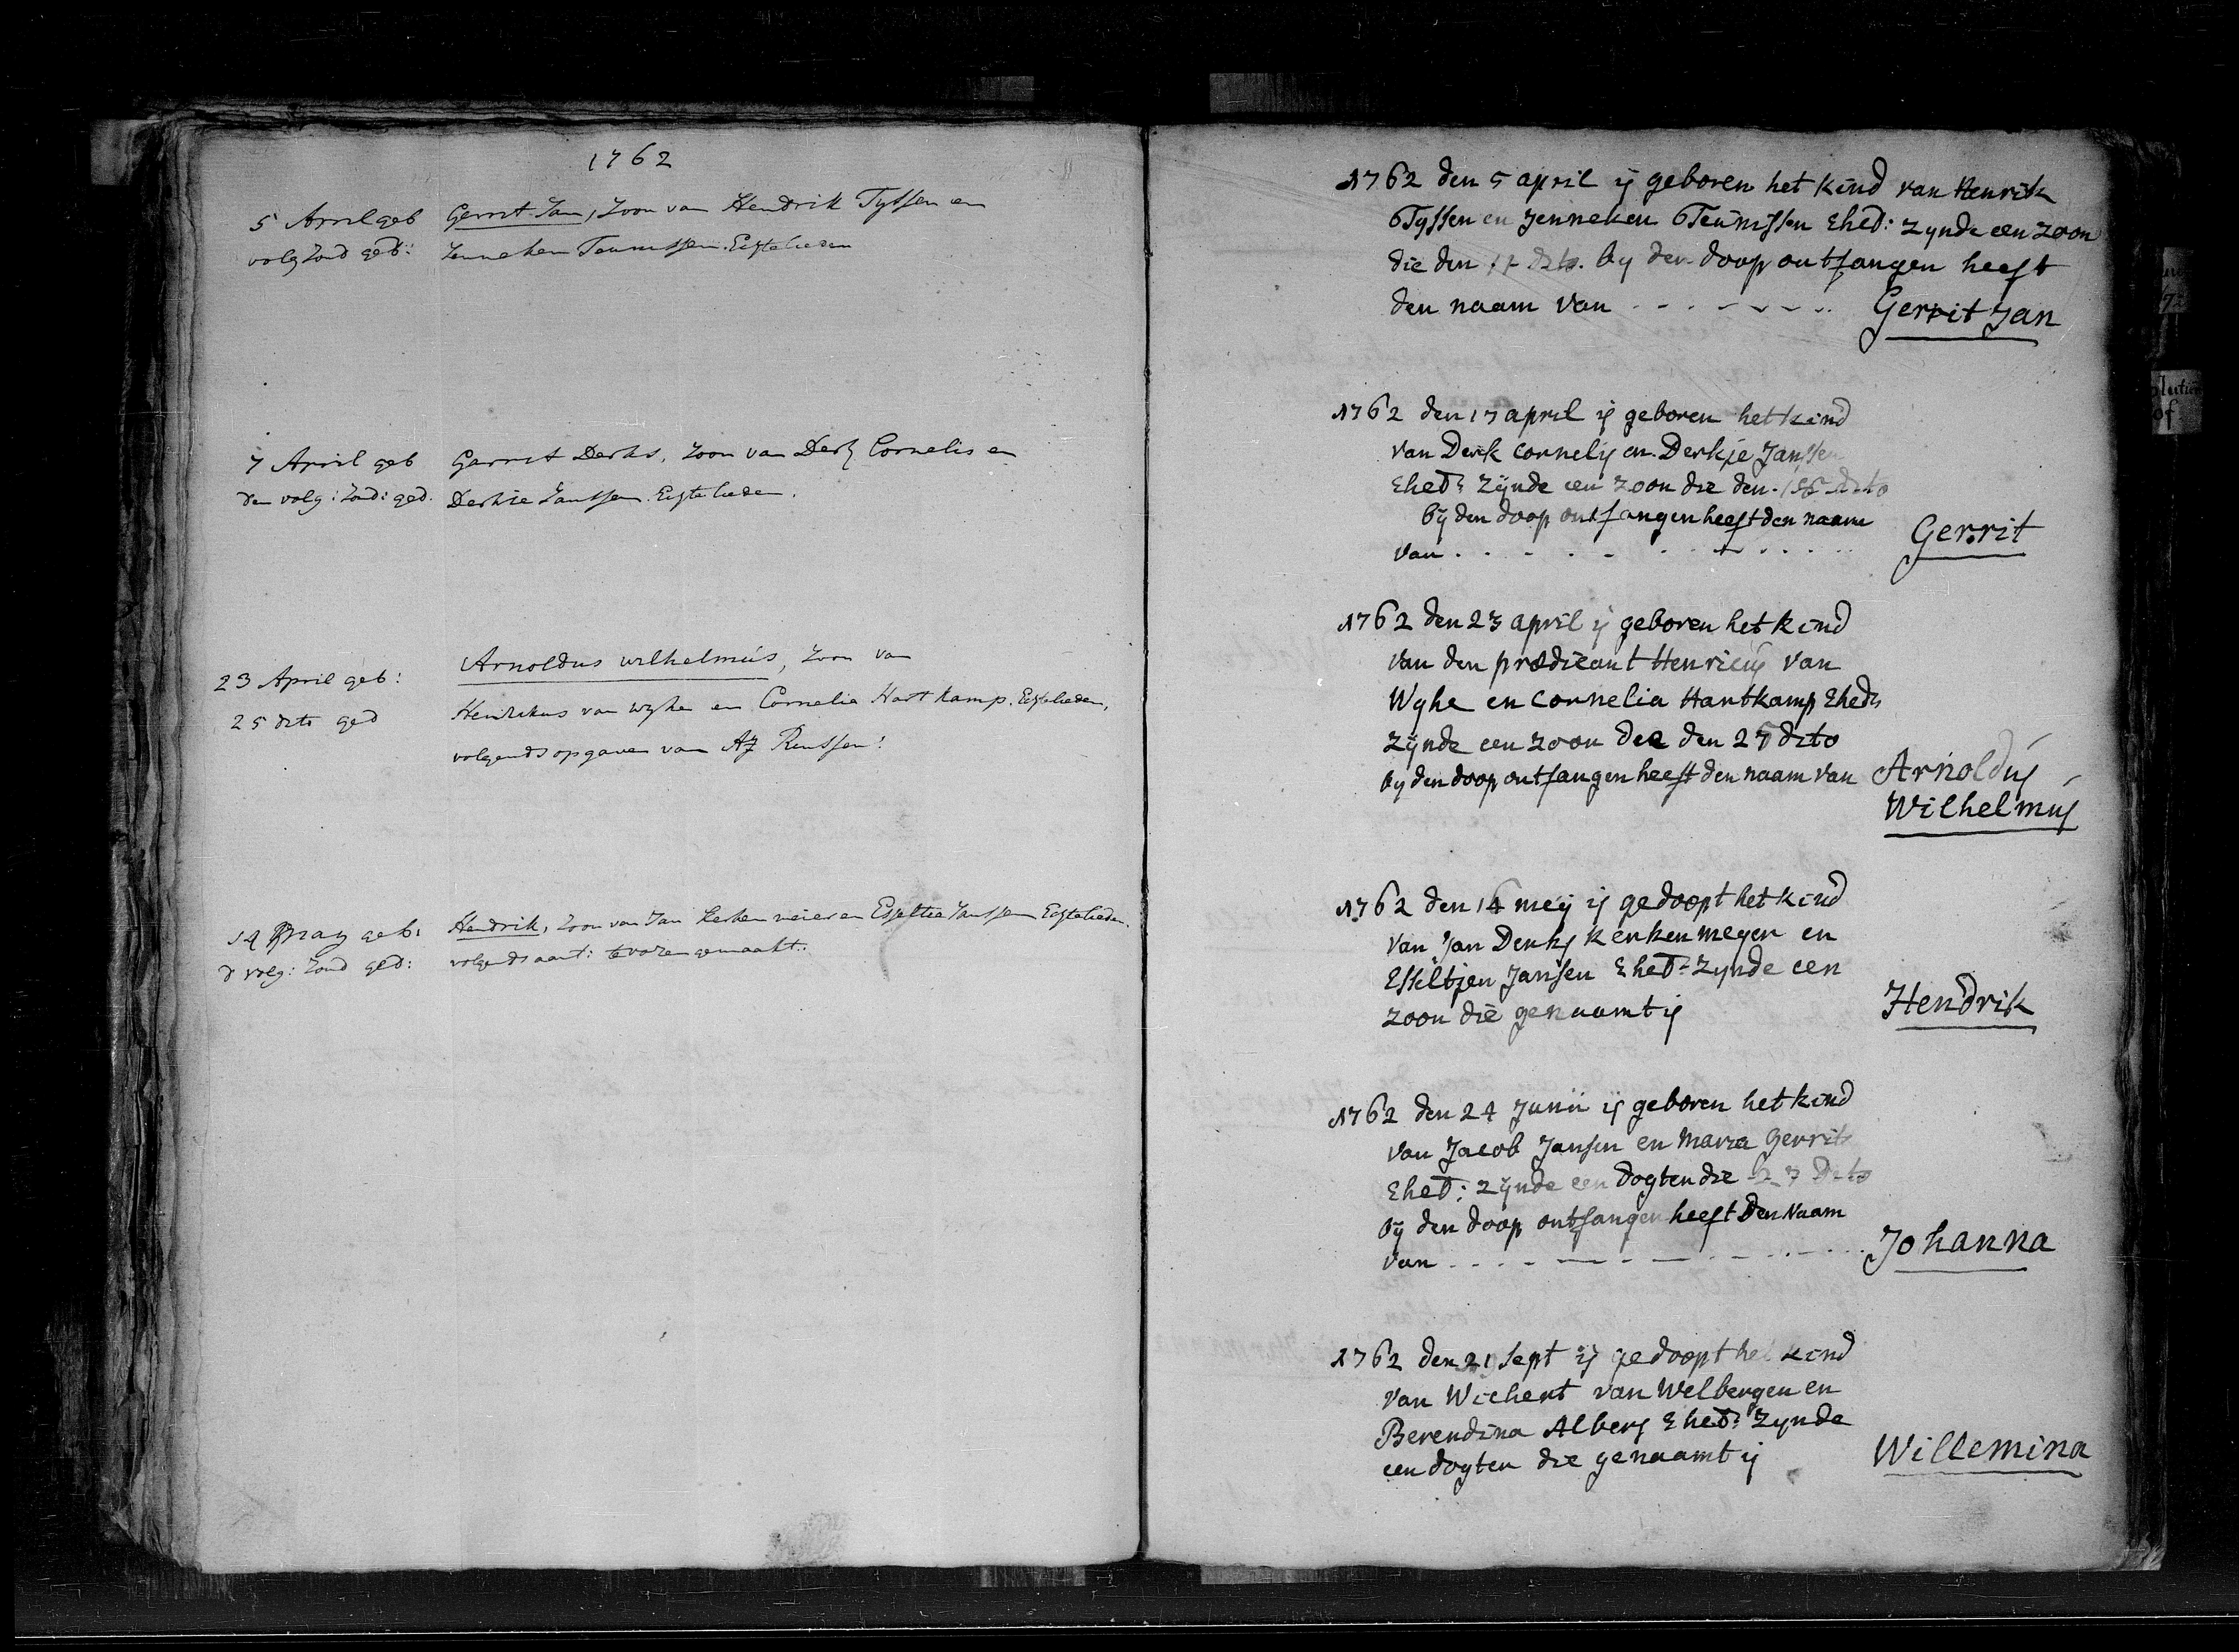 1762
5 April geb Gerrit Jan, Zoon van Hendrik Tyssen en
volg Zond ged: Jenneken Teunissen. Egtelieden
7 April geb Garrit Derks, Zoon van Derk Cornelis en
den volg: Zond: ged. Derkie Janssen. Egtelieden.
23 April geb: Arnoldus wilhelmús, Zoon van
25 dito ged Hendrikus van wyhe en Cornelia Hartkamp. Egtelieden,
volgends opgaven van Renssen:
14 May geb: Hendrik, Zoon van Jan Kerkenmeier en Esseltie Janssen Egtelieden.
d volg: Zond ged: volgends aant: te voren gemaakt.
1762 den 5 april is geboren het kind van Henrik
Tyssen en Jenneken Teunissen Ehed: zynde een zoon
die den 11 dito. by den doop ontfangen heeft
den naam van Gerrit Jan
1762 den 17 april is geboren het kind
van Derk cornelis en Derkje Janssen
Ehed: zijnde een zoon die den 18 dito
bij den doop ontfangen heeft den naam
van Gerrit
1762 den 23 april is geboren het kind
van den prædicant Henricus van
Wyhe en cornelia Hartkamp Ehed:
zijnde een zoon die den 25 dito
by den doop ontfangen heeft den naam van Arnoldus
Wilhelmus
1762 den 16 meij is gedoopt het kind
van Jan Derks kerkenmeyer en
Esseltjen Jansen Ehed: zynde een
zoon die genaamt is Hendrik
1762 den 24 Junii is geboren het kind
van Jacob Jansen en maria Gerrits
Ehed: zijnde een dogter die 27 Dito
bij den doop ontfangen heeft Den Naam
van Johanna
1762 den 21 sept is gedoopt het kind
van Wichert van Welbergen en
Berendina Albers Ehed: zynde
een dogter die genaamt is Willemina